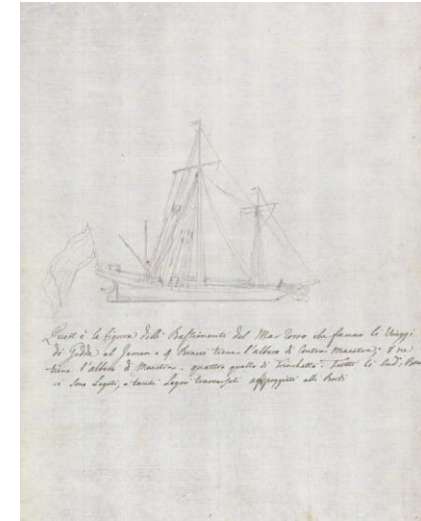 Quest è la figura delli Bastimenti del Mar rosso che fanno li Viaggi
di Gedda al Jemen. 4 Bracci tiene l'albero di Contra maestra; 8 ne
tiene l'albero di Maestra. quattro quello di Trinchetto. Tutti li Sud.
vi sono legati, a tanti legni traversati appoggiati alli Bordi